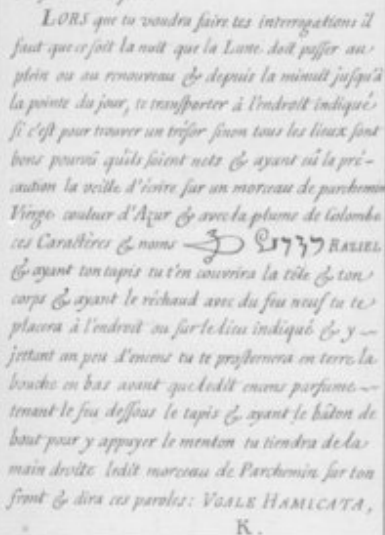 LORS que tu voudra faire tes interrogations il
faut que ce soit la nuit que la Lune doit passer au
plein ou au renouveau & depuis la minuit jusqu'à
la pointe du jour, te transporter à l'endroit indiqué
si c'est pour trouver un trésor sinon tous les lieux sont
bons pourvû qu'ils soient nets & ayant eû la pré-
caution la veille d'écrire sur un morceau de parchemin
Vierge couleur d'Azur & avec la plume de Colombe
ces Caractères & noms RAZIEL
& ayant ton tapis tu t'en couvrira la tête & ton
corps & ayant le réchaud avec du feu neuf tu te
placera à l'endroit ou sur le lieu indiqué & y
jettant un peu d'encens tu te prosternera en terre la
bouche en bas avant que ledit encens parfume
tenant le feu dessous le tapis & ayant le bâton de
bout pour y appuyer le menton tu tiendra de la
main droite ledit morceau de Parchemin sur ton
front & dira ces paroles: VGALE HAMICATA,
K.